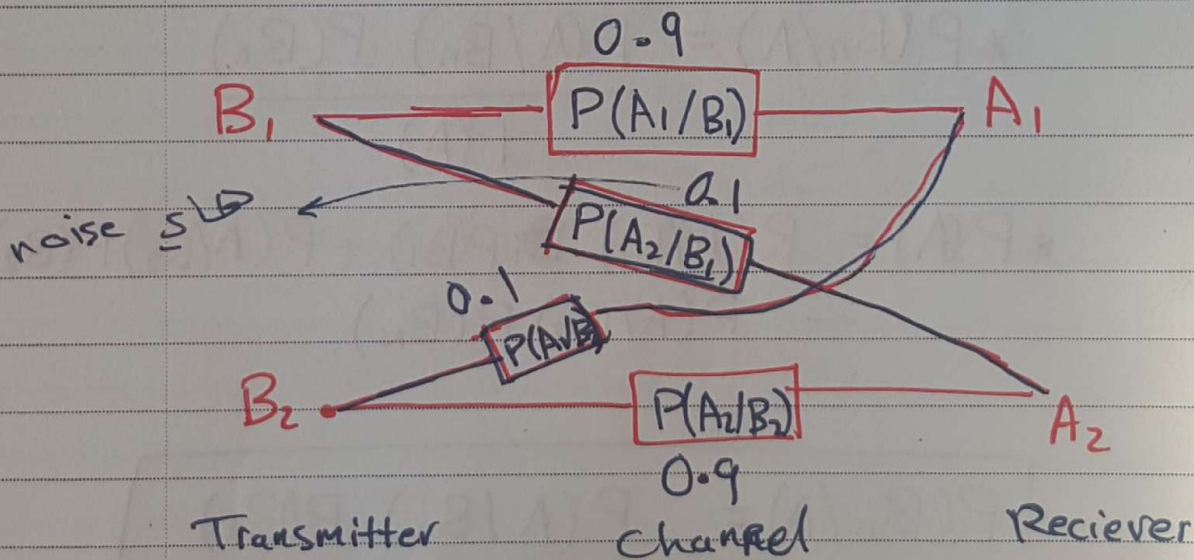 0.9
B₁ P(A₁/B₁) A₁
0.1
noise
P(A₂/B₁)
0.1
P(A₁/B₂)
B₂ P(A₂/B₂) A₂
0.9
Transmitter Channel Reciever